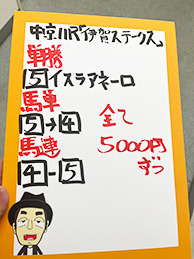 中京11R「伊賀ステークス」
単勝
5 イスラアネーロ
馬単
5→4
馬連
4-5
全て
5000円
ずつ